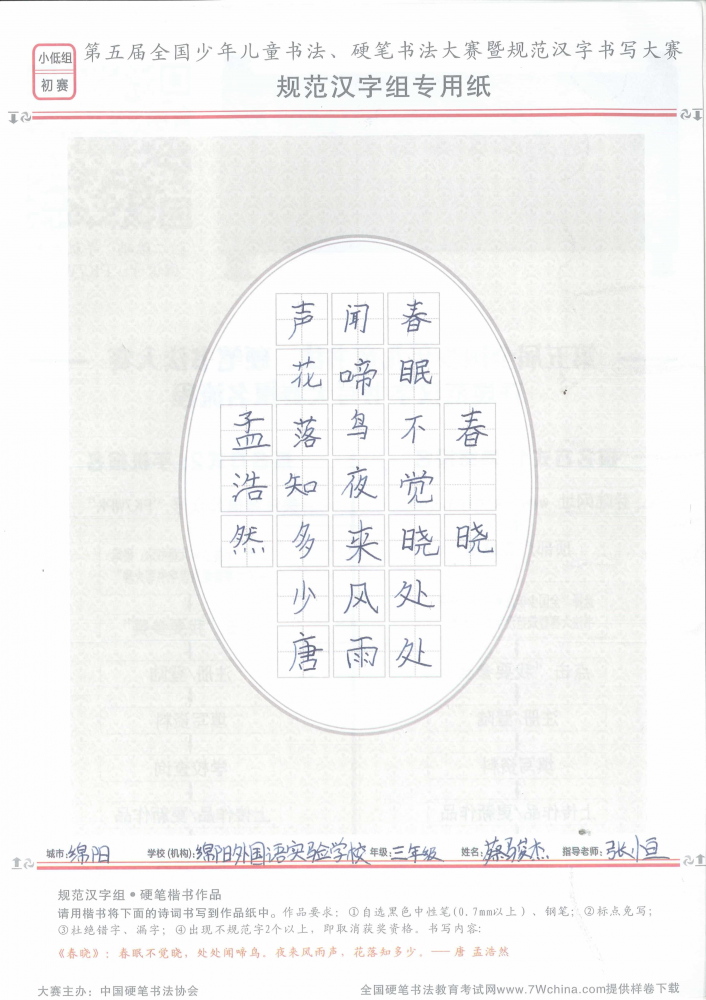 小低组
初赛
第五届全国少年儿童书法、硬笔书法大赛暨规范汉字书写大赛
规范汉字组专用纸
春晓
春眠不觉晓处处
闻啼鸟夜来风雨
声花落知多少唐
孟浩然
城市:绵阳 学校(机构):绵阳外国语实验学校 年级:三年级 姓名:蔡骏杰 指导老师:张恒
规范汉字组•硬笔楷书作品
请用楷书将下面的诗词书写到作品纸中。作品要求：①自选黑色中性笔(0.7mm以上)、钢笔；②标点免写；
③杜绝错字、漏字；④出现不规范字2个以上，即取消获奖资格。书写内容：
《春晓》：春眠不觉晓，处处闻啼鸟。夜来风雨声，花落知多少。——唐 孟浩然
大赛主办：中国硬笔书法协会
全国硬笔书法教育考试网www.7Wchina.com提供样卷下载